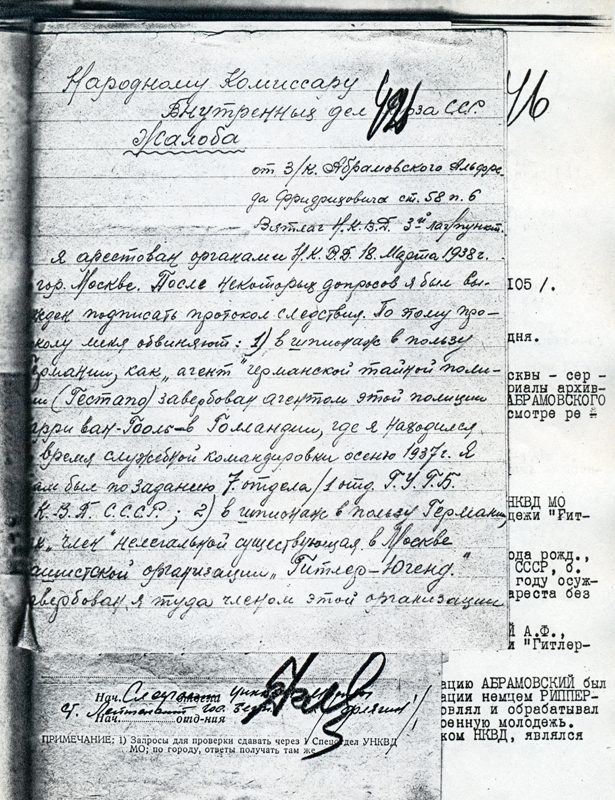 Народному Комиссару
Внутренных дел СССР
Жалоба
от З/К. Абрамовского Альфре
да Фридриховича ст. 58 п. 6
Вятлаг Н.К.В.Д. 3ий лаг/пункт.
Я арестован органами Н.К.В.Д. 18. Марта 1938 г.
гор. Москве. После некоторых допросов я был вы-
подписать протокол следствия. По этому про-
колу меня обвиняют: 1) в шпионаж в пользу
Германии, как „агент" германской тайной поли-
ии (Гестапо) завербован агентом этой полиции
арри ван-Гооль-в Голландии, где я находился
время служебной командировки осенью 1937 г. Я
ам был по заданию 7 отдела /1 отд. Г.У.Г.Б.
К.В.Д. С.С.С.Р.; 2) в шпионаж в пользу Германи,
к „член" нелегальной существующая в Москве
ашистской организации „Гитлер-Югенд."
авербован я туда членом этой организации
46
105 /.
дня.
сквы - сер -
риалы архив-
АБРАМОВСКОГО
смотре ре
НКВД МО
дежи "Гит-
ода рожд.,
СССР, б.
году осуж-
ареста без
Й А.Ф.,
и "Гитлер-
ацию АБРАМОВСКИЙ был
ации немцем РИППЕР-
овлял и обрабатывал
оенную молодежь.
ком НКВД, являлся
Нач.
Нач. отд-ния
ПРИМЕЧАНИЕ: 1) Запросы для проверки сдавать через 1 Спецотдел УНКВД
МО; по городу, ответы получать там же.